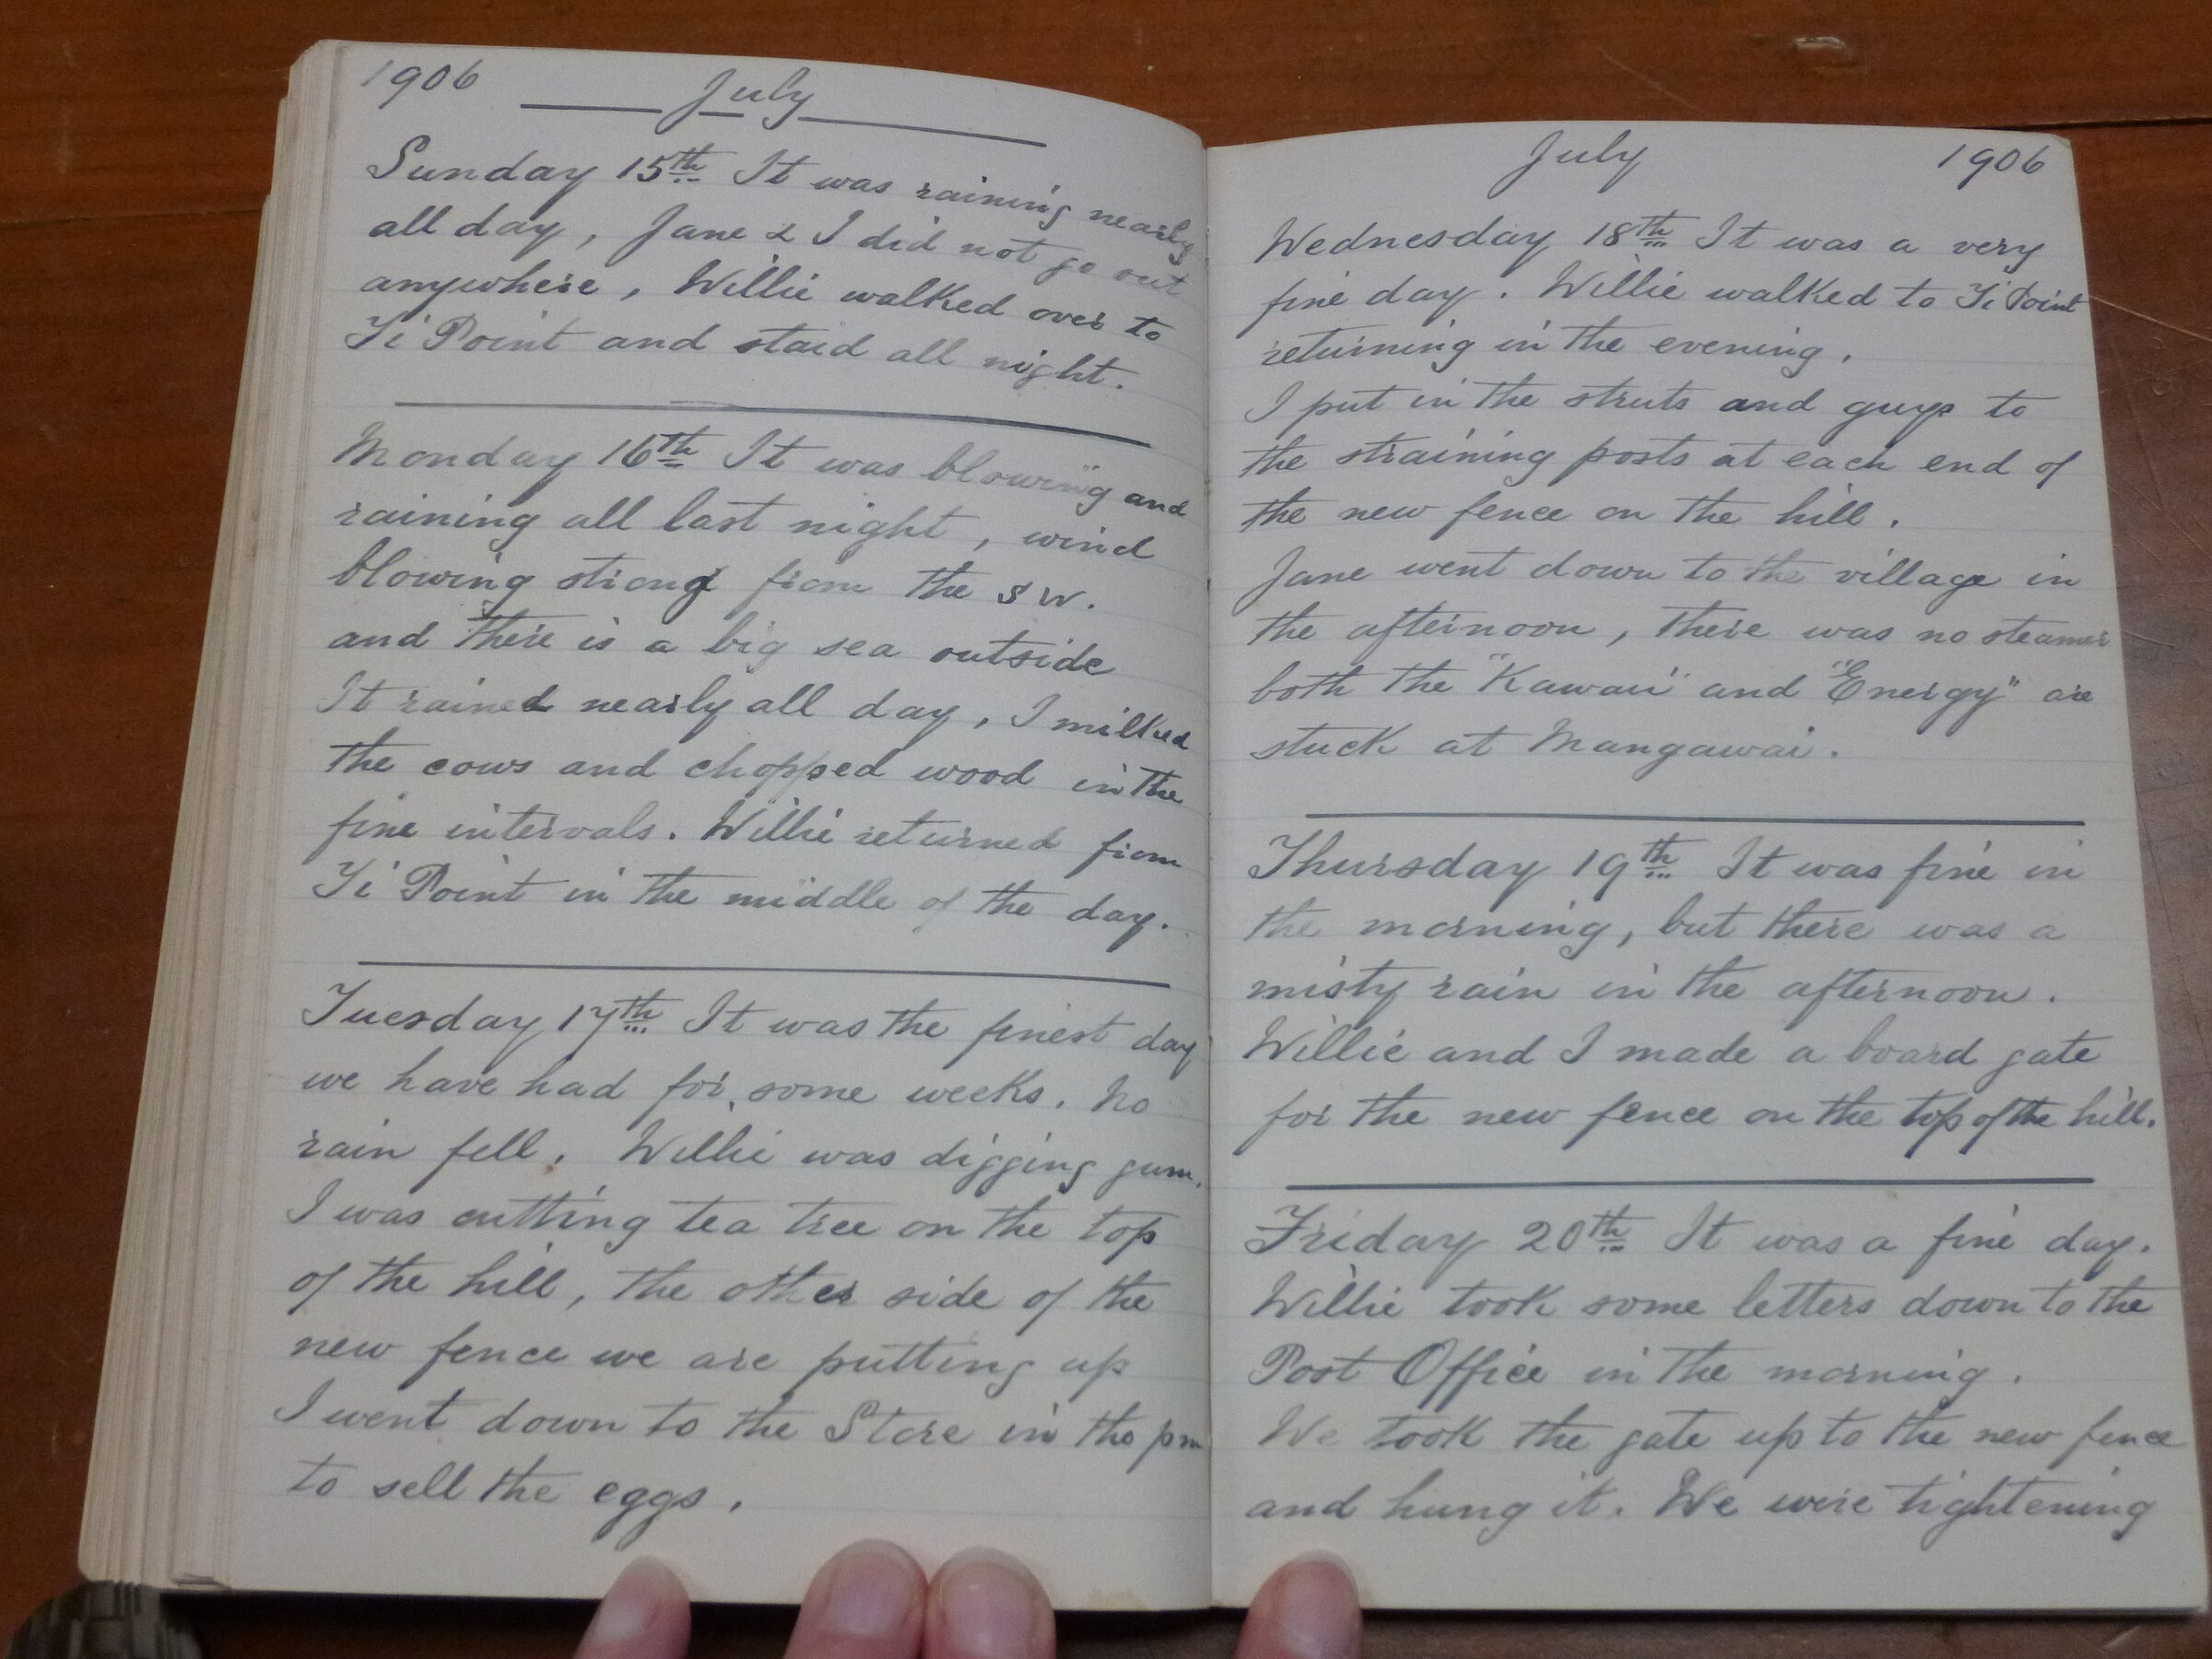 1906 July
Sunday 15th It was raining nearly
all day, Jane & I did not go out
anywhere, Willie walked over to
Ti Point and staid all night.
Monday 16th It was blowing and
raining all last night, wind
blowing strong from the SW.
and there is a big sea outside
It rained nearly all day, I milked
the cows and chopped wood in the
fine intervals. Willie returned from
Ti Point in the middle of the day.
Tuesday 17th It was the finest day
we have had for some weeks. No
rain fell. Willie was digging gum.
I was cutting tea tree on the top
of the hill, the other side of the
new fence we are putting up
I went down to the Store in the pm
to sell the eggs.
July 1906
Wednesday 18th It was a very
fine day. Willie walked to Ti Point
returning in the evening.
I put in the struts and guys to
the straining posts at each end of
the new fence on the hill.
Jane went down to the village in
the afternoon, there was no steamer
both the "Kawau" and "Energy" are
stuck at Mangawai.
Thursday 19th It was fine in
the morning, but there was a
misty rain in the afternoon.
Willie and I made a board gate
for the new fence on the top of the hill.
Friday 20th It was a fine day.
Willie took some letters down to the
Post Office in the morning.
We took the gate up to the new fence
and hung it. We were tightening